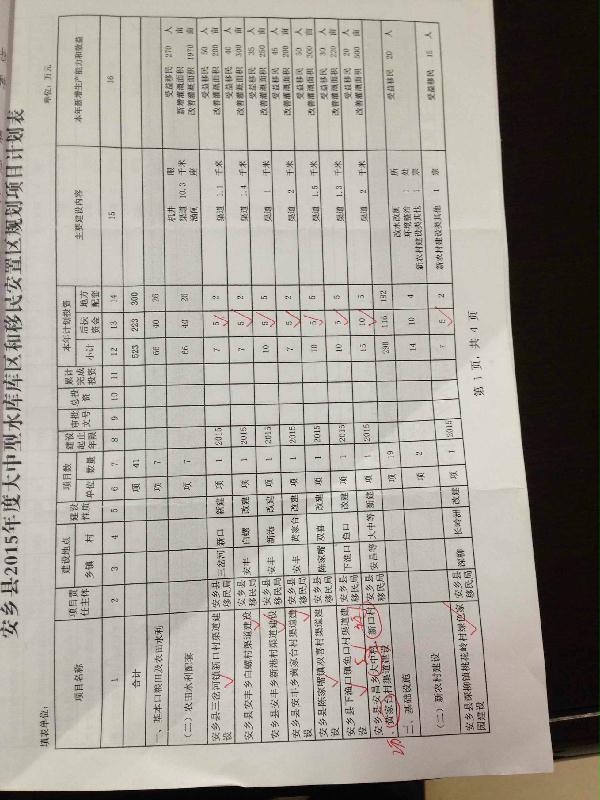 安乡县2015年度大中型水库库区和移民安置区规划项目计划表
填表单位： 单位：万元
项目名称 项目责任主体 建设地点 建设性质 项目数 建设起止年限 审批文号 总投资 累计完成投资 本年计划投资 主要建设内容 本年新增生产能力和效益
乡镇 村 单位 数量 小计 后扶资金 地方配套
1 2 3 4 5 6 7 8 9 10 11 12 13 14 15 16
合计 项 41 523 223 300
一、基本口粮田及农田水利 项 7 66 40 26
（二）农田水利配套 项 7 66 40 26 渠道 10.3 千米 受益移民 270 人 新增灌溉面积 亩 改善灌溉面积 1970 亩
安乡县三岔河镇新口村渠道建设 安乡县移民局 三岔河 新口 新建 项 1 2015 7 5 2 渠道 1.1 千米 受益移民 50 人 改善灌溉面积 200 亩
安乡县安丰乡白螺村渠道建设 安乡县移民局 安丰 白螺 改建 项 1 2015 7 5 2 渠道 1.4 千米 受益移民 40 人 改善灌溉面积 300 亩
安乡县安丰乡新港村渠道建设 安乡县移民局 安丰 新港 改建 项 1 2015 10 5 5 渠道 1 千米 受益移民 35 人 改善灌溉面积 250 亩
安乡县安丰乡黄家台村渠道建设 安乡县移民局 安丰 黄家台 改建 项 1 2015 7 5 2 渠道 2 千米 受益移民 45 人 改善灌溉面积 200 亩
安乡县陈家嘴镇双喜村渠道建设 安乡县移民局 陈家嘴 双喜 改建 项 1 2015 10 5 5 渠道 1.5 千米 受益移民 50 人 改善灌溉面积 300 亩
安乡县下渔口镇鱼口村渠道建设 安乡县移民局 下渔口 鱼口 改建 项 1 2015 10 5 5 渠道 1.3 千米 受益移民 30 人 改善灌溉面积 220 亩
安乡县安昌乡大中村、新口村、黄家台村渠道建设 安乡县移民局 安昌等 大中等 新建 项 1 2015 15 10 5 渠道 2 千米 受益移民 20 人 改善灌溉面积 500 亩
二、基础设施 项 19 298 116 182 改水改厕 所 环境整治 1 处 新农村建设类其他 1 宗 受益移民 20 人
（二）新农村建设 项 2 14 10 4
安乡县深柳镇桃花岭村绿色家园建设 安乡县移民局 深柳 长岭洲 改建 项 1 2015 7 5 2 新农村建设类其他 1 宗 受益移民 15 人
第 1 页，共 4 页